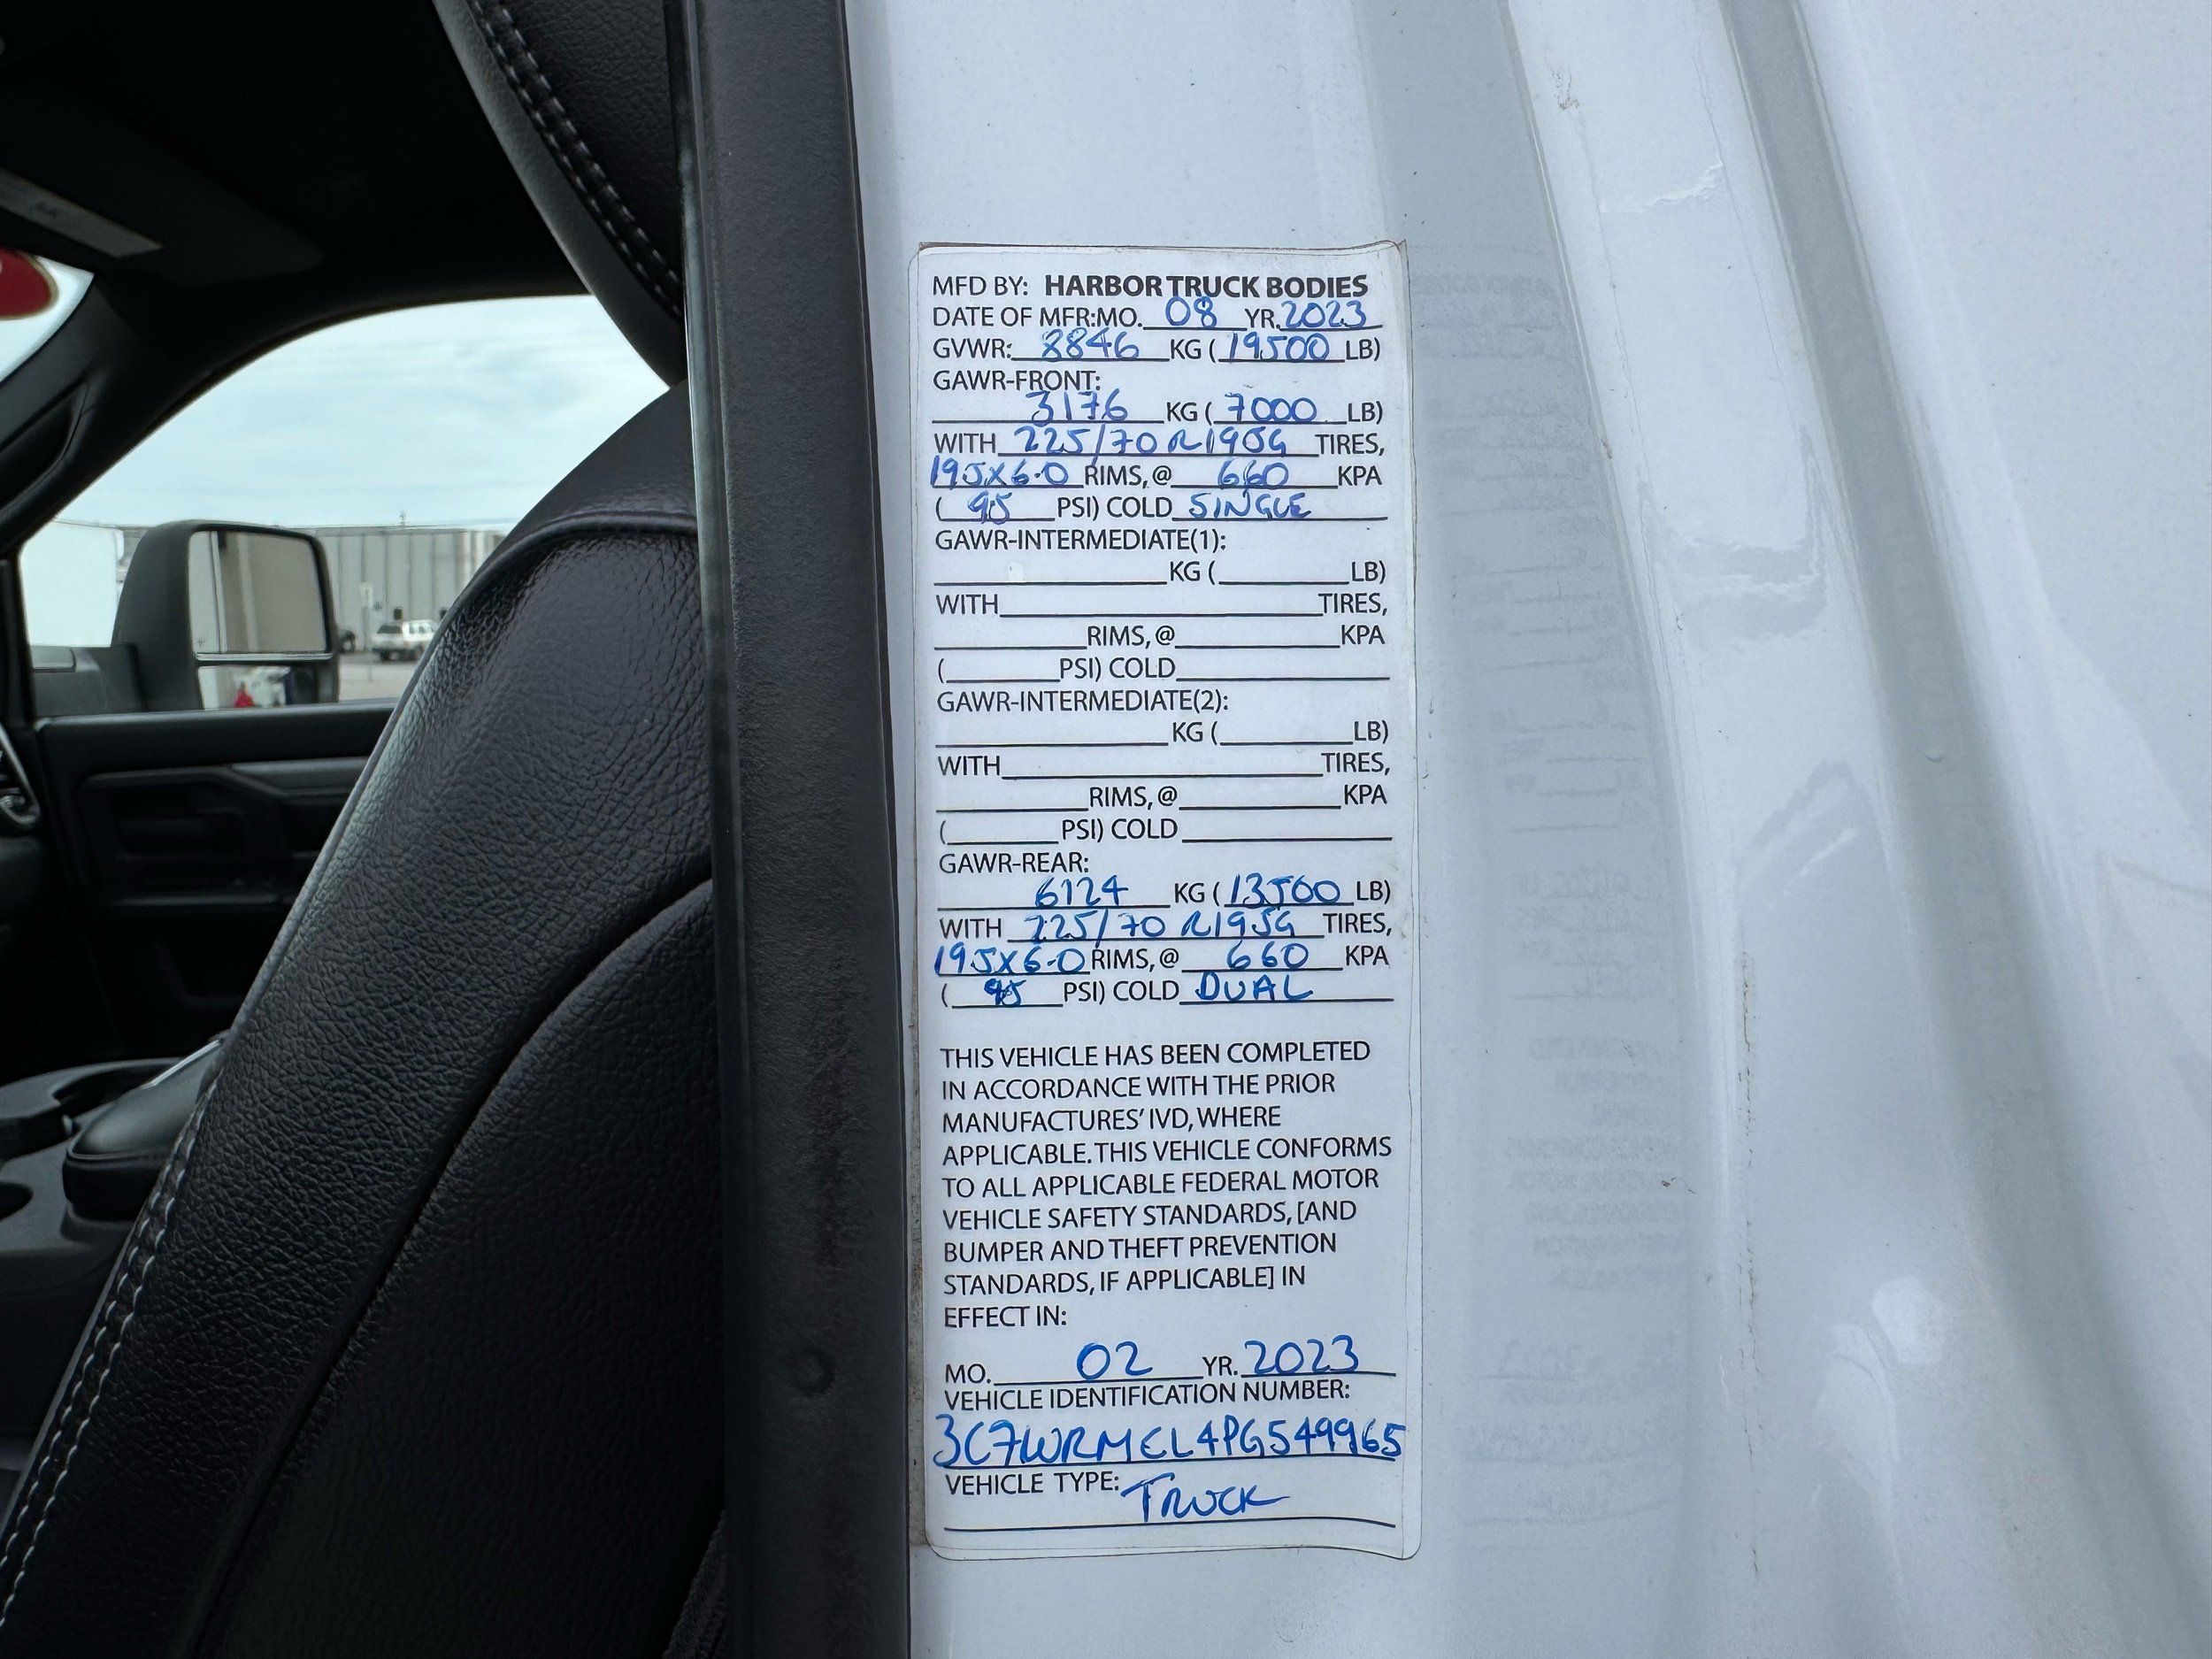 MFD BY: HARBOR TRUCK BODIES
DATE OF MFR:MO. 08 YR. 2023
GVWR: 8846 KG ( 19500 LB)
GAWR-FRONT:
3176 KG ( 7000 LB)
WITH 225/70 R195G TIRES,
195X6.0 RIMS, @ 660 KPA
( 95 PSI) COLD SINGLE
GAWR-INTERMEDIATE(1):
KG ( LB)
WITH TIRES,
RIMS, @ KPA
( PSI) COLD
GAWR-INTERMEDIATE(2):
KG ( LB)
WITH TIRES,
RIMS, @ KPA
( PSI) COLD
GAWR-REAR:
6124 KG ( 13500 LB)
WITH 225/70 R195G TIRES,
195X6.0 RIMS, @ 660 KPA
( 95 PSI) COLD DUAL
THIS VEHICLE HAS BEEN COMPLETED
IN ACCORDANCE WITH THE PRIOR
MANUFACTURES' IVD, WHERE
APPLICABLE. THIS VEHICLE CONFORMS
TO ALL APPLICABLE FEDERAL MOTOR
VEHICLE SAFETY STANDARDS, [AND
BUMPER AND THEFT PREVENTION
STANDARDS, IF APPLICABLE] IN
EFFECT IN:
MO. 02 YR. 2023
VEHICLE IDENTIFICATION NUMBER:
3C7WRMCL4PG549965
VEHICLE TYPE: TRUCK